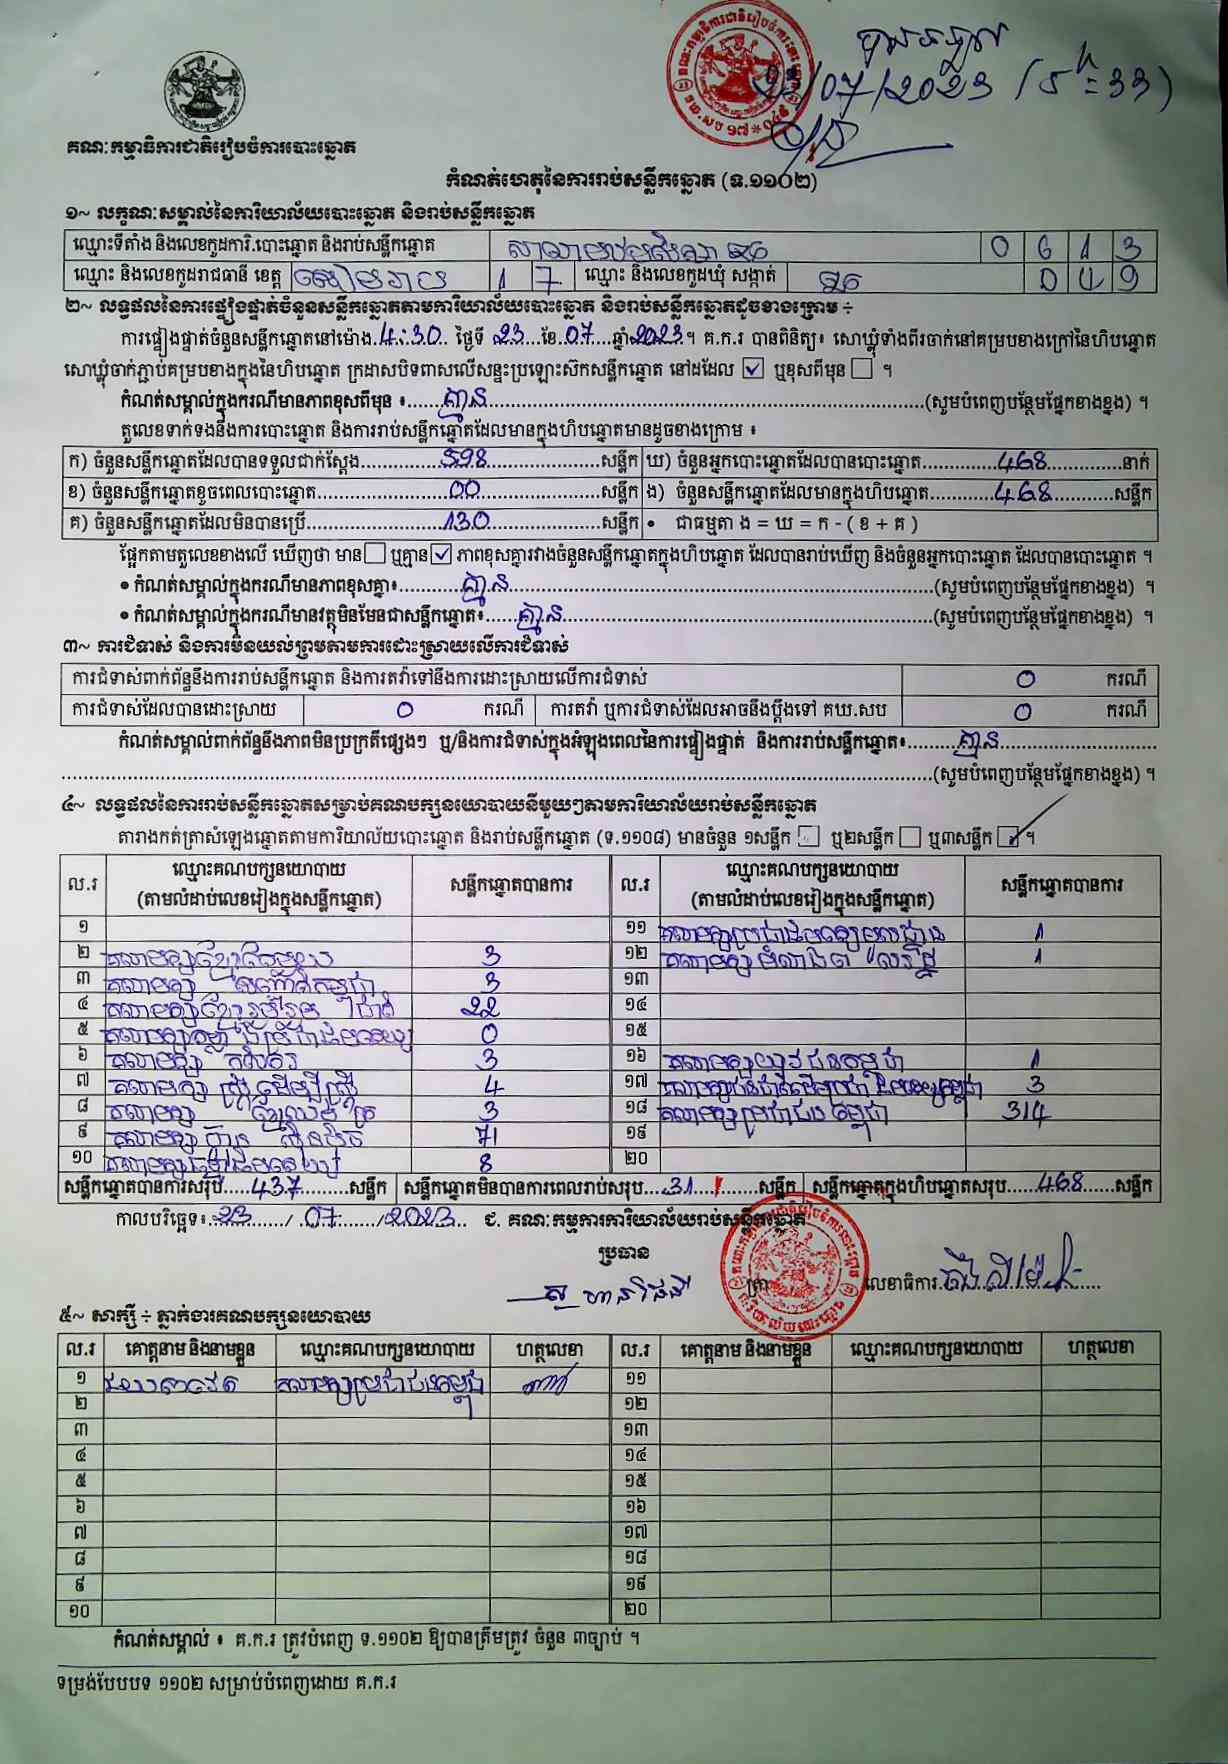 23/07/2023 (5h=33)
គណៈកម្មាធិការជាតិរៀបចំការបោះឆ្នោត
កំណត់ហេតុនៃការរាប់សន្លឹកឆ្នោត (ទ.១១០២)
១~ លក្ខណៈសម្គាល់នៃការិយាល័យបោះឆ្នោត និងរាប់សន្លឹកឆ្នោត
ឈ្មោះទីតាំង និងលេខកូដការិ.បោះឆ្នោត និងរាប់សន្លឹកឆ្នោត 0 6 1 3
ឈ្មោះ និងលេខកូដរាជធានី ខេត្ត សៀមរាប 1 7 ឈ្មោះ និងលេខកូដឃុំ សង្កាត់ 0 4 9
២~ លទ្ធផលនៃការផ្ទៀងផ្ទាត់ចំនួនសន្លឹកឆ្នោតតាមការិយាល័យបោះឆ្នោត និងរាប់សន្លឹកឆ្នោតដូចខាងក្រោម ÷
ការផ្ទៀងផ្ទាត់ចំនួនសន្លឹកឆ្នោតនៅម៉ោង 4:30 ថ្ងៃទី 23 ខែ 07 ឆ្នាំ 2023 ។ គ.ក.រ បានពិនិត្យ៖ សោឃ្លុំទាំងពីរចាក់នៅគម្របខាងក្រៅនៃហិបឆ្នោត
សោឃ្លុំចាក់ភ្ជាប់គម្របខាងក្នុងនៃហិបឆ្នោត ក្រដាសបិទពាសលើសន្ទះប្រឡោះស៊កសន្លឹកឆ្នោត នៅដដែល ☑ ឬខុសពីមុន ☐ ។
កំណត់សម្គាល់ក្នុងករណីមានភាពខុសពីមុន ៖ គ្មាន (សូមបំពេញបន្ថែមផ្នែកខាងខ្នង) ។
តួលេខទាក់ទងនឹងការបោះឆ្នោត និងការរាប់សន្លឹកឆ្នោតដែលមានក្នុងហិបឆ្នោតមានដូចខាងក្រោម ៖
ក) ចំនួនសន្លឹកឆ្នោតដែលបានទទួលជាក់ស្តែង 598 សន្លឹក ឃ) ចំនួនអ្នកបោះឆ្នោតដែលបានបោះឆ្នោត 468 នាក់
ខ) ចំនួនសន្លឹកឆ្នោតខូចពេលបោះឆ្នោត 00 សន្លឹក ង) ចំនួនសន្លឹកឆ្នោតដែលមានក្នុងហិបឆ្នោត 468 សន្លឹក
គ) ចំនួនសន្លឹកឆ្នោតដែលមិនបានប្រើ 130 សន្លឹក • ជាធម្មតា ង = ឃ = ក - ( ខ + គ )
ផ្អែកតាមតួលេខខាងលើ ឃើញថា មាន ☐ ឬគ្មាន ☑ ភាពខុសគ្នារវាងចំនួនសន្លឹកឆ្នោតក្នុងហិបឆ្នោត ដែលបានរាប់ឃើញ និងចំនួនអ្នកបោះឆ្នោត ដែលបានបោះឆ្នោត ។
• កំណត់សម្គាល់ក្នុងករណីមានភាពខុសគ្នា៖ គ្មាន (សូមបំពេញបន្ថែមផ្នែកខាងខ្នង) ។
• កំណត់សម្គាល់ក្នុងករណីមានវត្ថុមិនមែនជាសន្លឹកឆ្នោត៖ គ្មាន (សូមបំពេញបន្ថែមផ្នែកខាងខ្នង) ។
៣~ ការជំទាស់ និងការមិនយល់ព្រមតាមការដោះស្រាយលើការជំទាស់
ការជំទាស់ពាក់ព័ន្ធនឹងការរាប់សន្លឹកឆ្នោត និងការតវ៉ាទៅនឹងការដោះស្រាយលើការជំទាស់ 0 ករណី
ការជំទាស់ដែលបានដោះស្រាយ 0 ករណី ការតវ៉ា ឬការជំទាស់ដែលអាចនឹងប្តឹងទៅ គឃ.សប 0 ករណី
កំណត់សម្គាល់ពាក់ព័ន្ធនឹងភាពមិនប្រក្រតីផ្សេងៗ ឬ/និងការជំទាស់ក្នុងអំឡុងពេលនៃការផ្ទៀងផ្ទាត់ និងការរាប់សន្លឹកឆ្នោត៖ គ្មាន
(សូមបំពេញបន្ថែមផ្នែកខាងខ្នង) ។
៤~ លទ្ធផលនៃការរាប់សន្លឹកឆ្នោតសម្រាប់គណបក្សនយោបាយនីមួយៗតាមការិយាល័យរាប់សន្លឹកឆ្នោត
តារាងកត់ត្រាសំឡេងឆ្នោតតាមការិយាល័យបោះឆ្នោត និងរាប់សន្លឹកឆ្នោត (ទ.១១០៨) មានចំនួន ១សន្លឹក ☐ ឬ២សន្លឹក ☐ ឬ៣សន្លឹក ☑ ។
ល.រ ឈ្មោះគណបក្សនយោបាយ (តាមលំដាប់លេខរៀងក្នុងសន្លឹកឆ្នោត) សន្លឹកឆ្នោតបានការ ល.រ ឈ្មោះគណបក្សនយោបាយ (តាមលំដាប់លេខរៀងក្នុងសន្លឹកឆ្នោត) សន្លឹកឆ្នោតបានការ
១ ១១ 1
២ គណបក្សខ្មែរតែមួយ 3 ១២ 1
៣ គណបក្ស 3 ១៣
៤ គណបក្សខ្មែររួបរួមជាតិ 22 ១៤
៥ គណបក្ស 0 ១៥
៦ គណបក្ស កសិករ 3 ១៦ គណបក្សយុវជនកម្ពុជា 1
៧ គណបក្ស ស្ត្រីដើម្បីស្ត្រី 4 ១៧ 3
៨ គណបក្ស 3 ១៨ គណបក្សប្រជាជនកម្ពុជា 314
៩ គណបក្ស 71 ១៩
១០ គណបក្ស 8 ២០
សន្លឹកឆ្នោតបានការសរុប 437 សន្លឹក សន្លឹកឆ្នោតមិនបានការពេលរាប់សរុប 31 សន្លឹក សន្លឹកឆ្នោតក្នុងហិបឆ្នោតសរុប 468 សន្លឹក
កាលបរិច្ឆេទ៖ 23 / 07 / 2023 ជ. គណៈកម្មការការិយាល័យរាប់សន្លឹកឆ្នោត
ប្រធាន
ត្រា លេខាធិការ
៥~ សាក្សី ÷ ភ្នាក់ងារគណបក្សនយោបាយ
ល.រ គោត្តនាម និងនាមខ្លួន ឈ្មោះគណបក្សនយោបាយ ហត្ថលេខា ល.រ គោត្តនាម និងនាមខ្លួន ឈ្មោះគណបក្សនយោបាយ ហត្ថលេខា
១ គណបក្សប្រជាជនកម្ពុជា ១១
២ ១២
៣ ១៣
៤ ១៤
៥ ១៥
៦ ១៦
៧ ១៧
៨ ១៨
៩ ១៩
១០ ២០
កំណត់សម្គាល់ ៖ គ.ក.រ ត្រូវបំពេញ ទ.១១០២ ឱ្យបានត្រឹមត្រូវ ចំនួន ៣ច្បាប់ ។
ទម្រង់បែបបទ ១១០២ សម្រាប់បំពេញដោយ គ.ក.រ